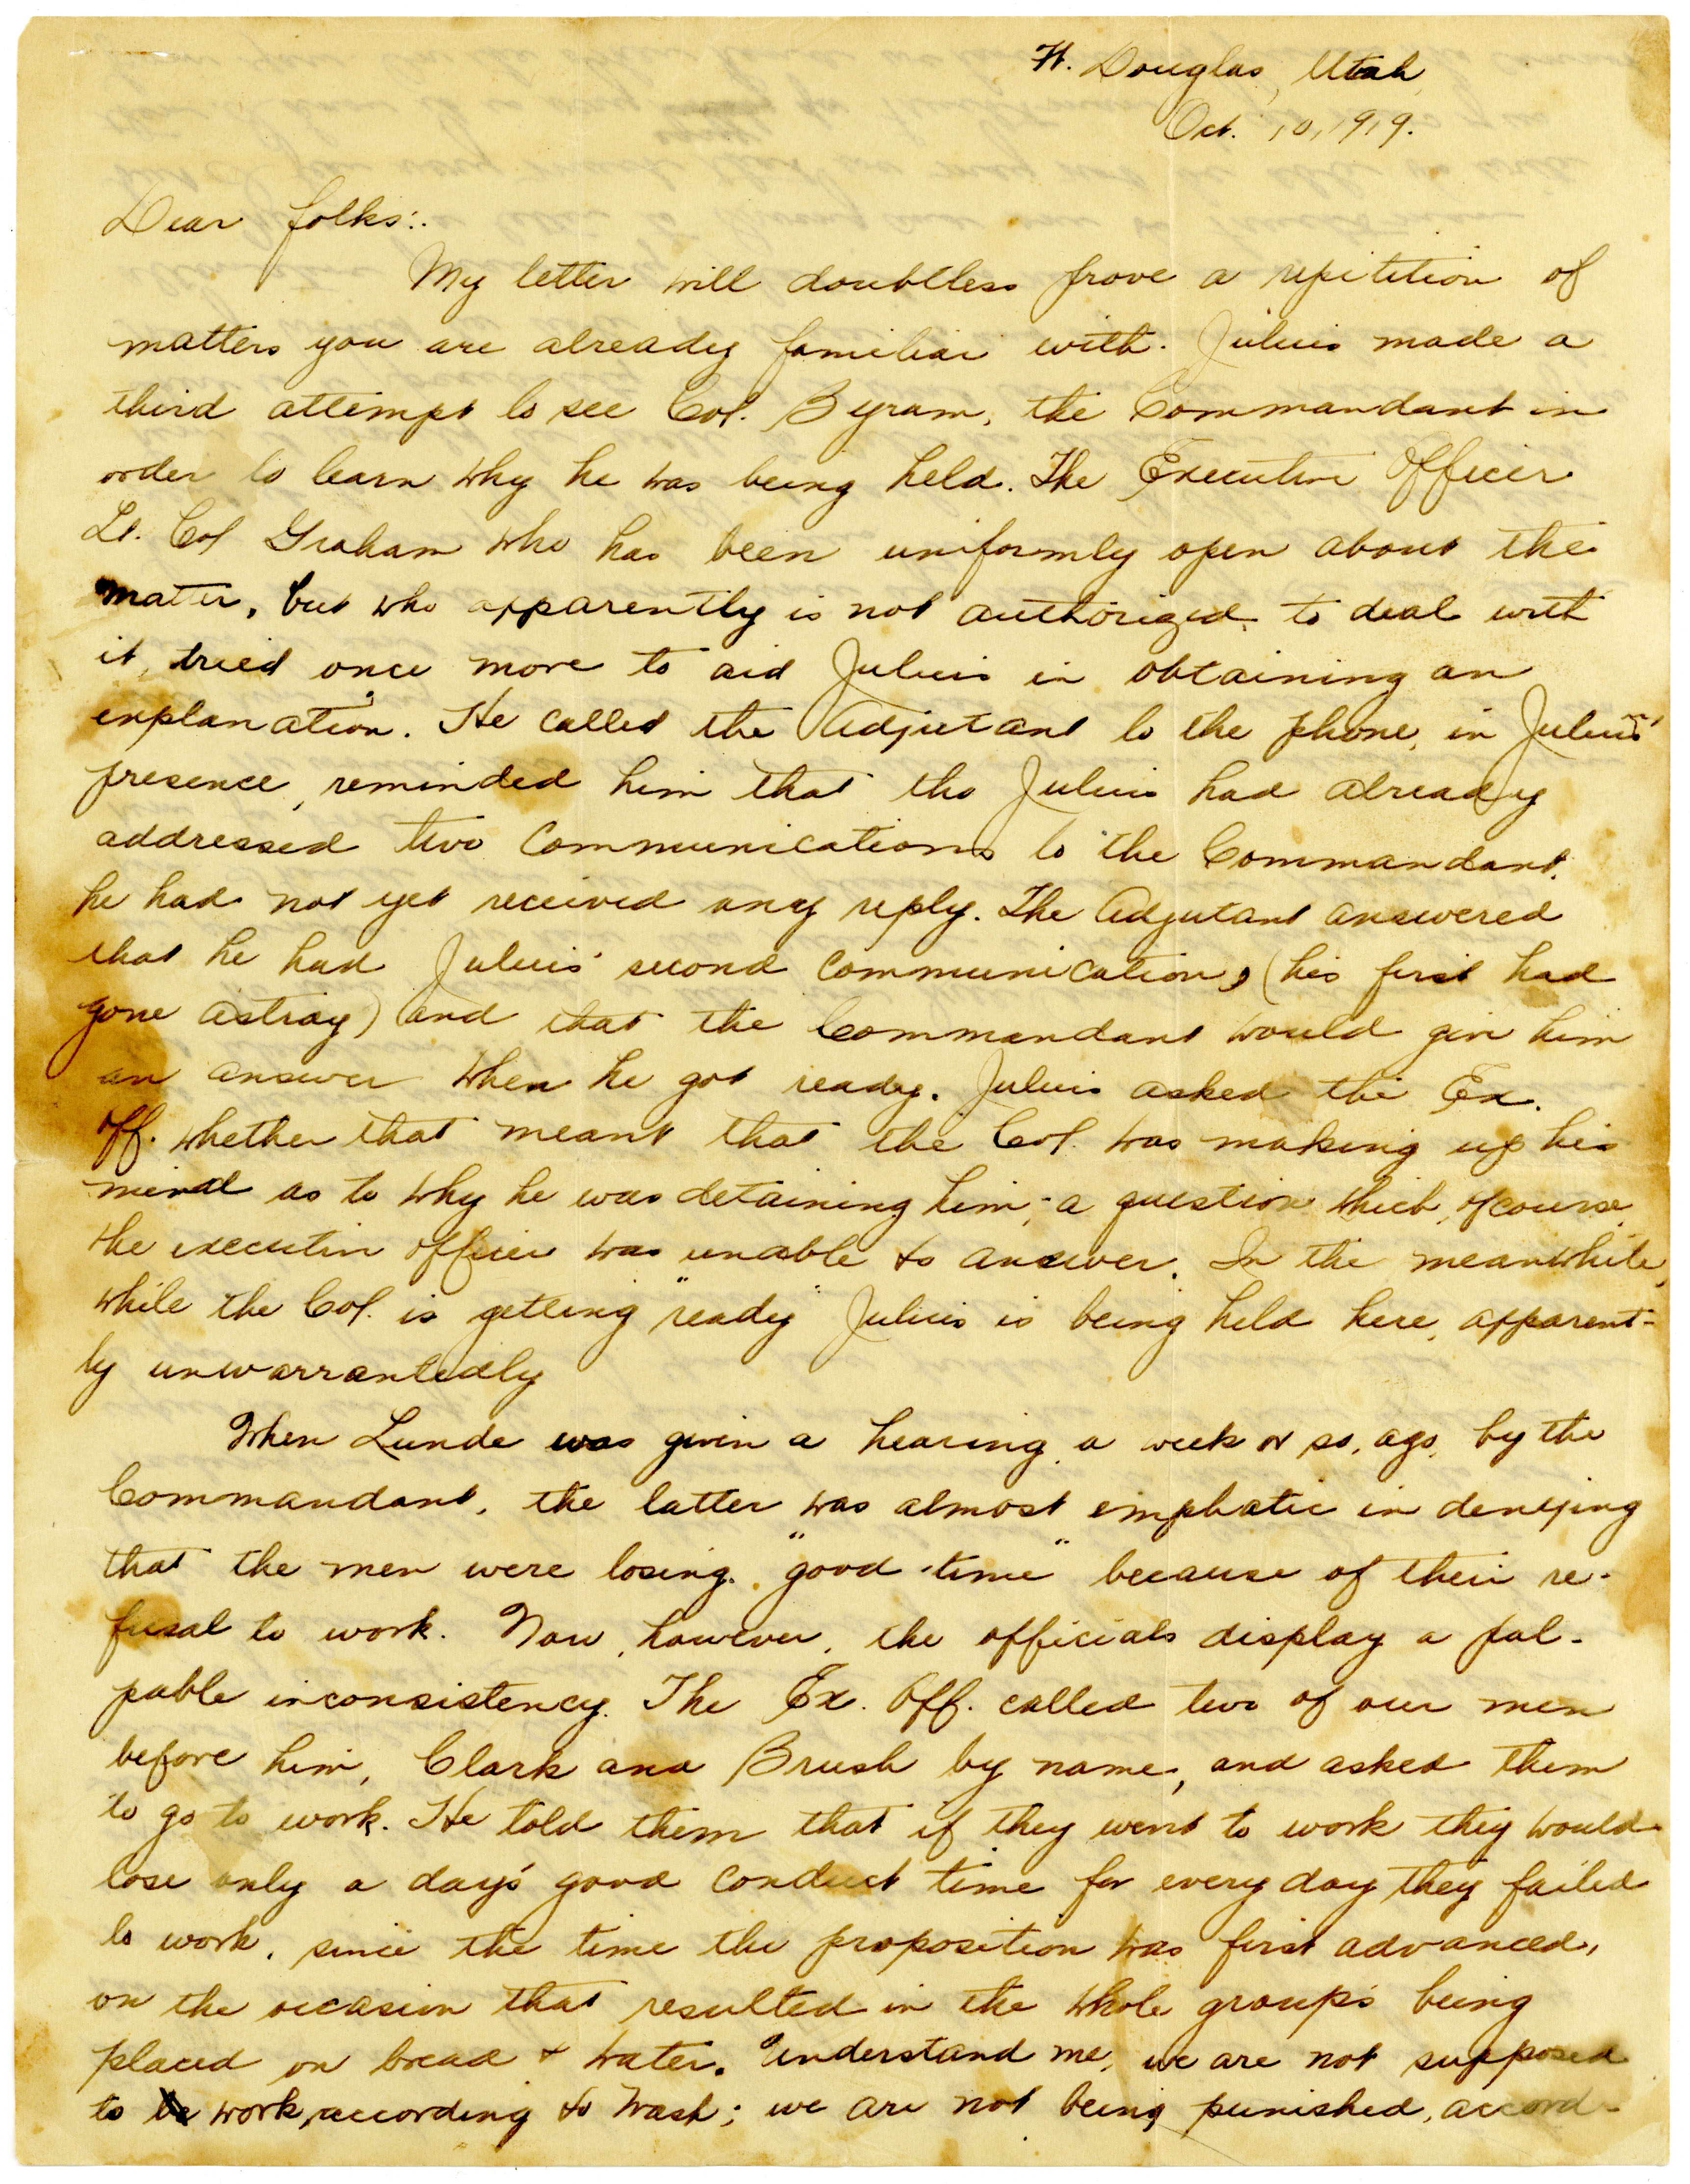 Ft. Douglas, Utah,
Oct. 10, 1919.
Dear folks:.
My letter will doubtless prove a repitition of
matters you are already familiar with. Julius made a
third attempt to see Col. Byram, the Commandant in
order to learn why he was being held. The Executive Officer
Lt. Col Graham who has been uniformly open about the
matter, but who apparently is not authorized to deal with
it, tried once more to aid Julius in obtaining an
explanation. He called the Adjutant to the phone, in Julius'
presence, reminded him that tho Julius had already
addressed two communications to the Commandant,
he had not yet received any reply. The Adjutant answered
that he had Julius' second communication, (his first had
gone astray) and that the Commandant would give him
an answer when he got ready. Julius asked the Ex.
Off. whether that meant that the Col. was making up his
mind as to why he was detaining him, - a question which, of course,
the executive officer was unable to answer. In the meanwhile,
while the Col. is getting "ready" Julius is being held here, apparent-
ly unwarrantedly
When Lunde was given a hearing, a week or so, ago, by the
Commandant, the latter was almost emphatic in denying
that the men were losing "good time" because of their re-
fusal to work. Now, however, the officials display a pal-
pable inconsistency. The Ex. Off. called two of our men
before him, Clark and Brush by name, and asked them
to go to work. He told them that if they went to work they would
lose only a day's good conduct time for every day they failed
to work, since the time the proposition was first advanced,
on the occasion that resulted in the whole group's being
placed on bread + water. Understand me, we are not supposed
to work, according to Wash; we are not being punished, accord-